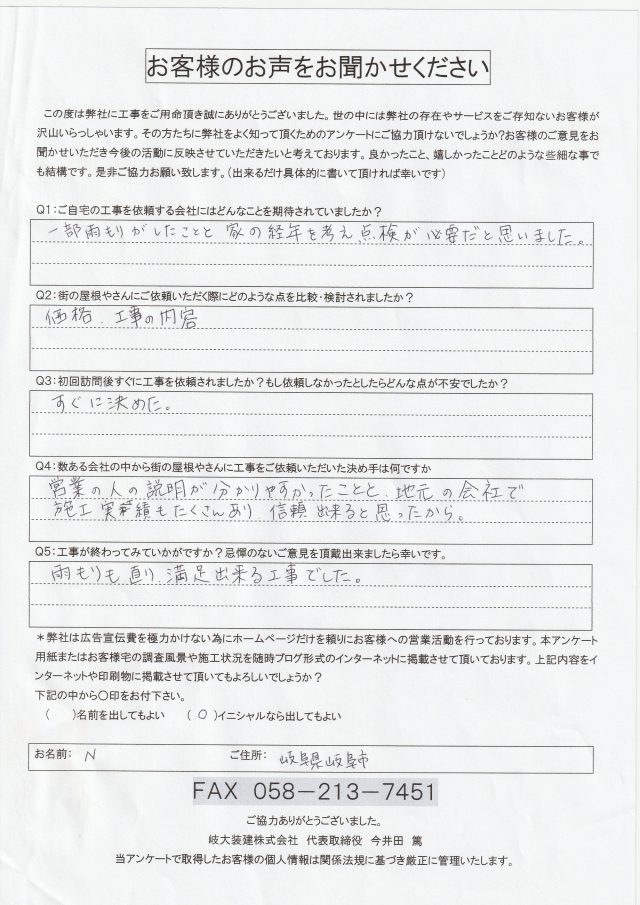 お客様のお声をお聞かせください
この度は弊社に工事をご用命頂き誠にありがとうございました。世の中には弊社の存在やサービスをご存知ないお客様が
沢山いらっしゃいます。その方たちに弊社をよく知って頂くためのアンケートにご協力頂けないでしょうか?お客様のご意見をお
聞かせいただき今後の活動に反映させていただきたいと考えております。良かったこと、嬉しかったことどのような些細な事で
も結構です。是非ご協力お願い致します。(出来るだけ具体的に書いて頂ければ幸いです)
Q1:ご自宅の工事を依頼する会社にはどんなことを期待されていましたか?
一部雨もりがしたことと 家の経年を考え点検が必要だと思いました。
Q2:街の屋根やさんにご依頼いただく際にどのような点を比較・検討されましたか?
価格、工事の内容
Q3:初回訪問後すぐに工事を依頼されましたか?もし依頼しなかったとしたらどんな点が不安でしたか?
すぐに決めた。
Q4:数ある会社の中から街の屋根やさんに工事をご依頼いただいた決め手は何ですか
営業の人の説明が分かりやすかったことと、地元の会社で
施工実績もたくさんあり 信頼出来ると思ったから。
Q5:工事が終わってみていかがですか?忌憚のないご意見を頂戴出来ましたら幸いです。
雨もりも直り 満足出来る工事でした。
*弊社は広告宣伝費を極力かけない為にホームページだけを頼りにお客様への営業活動を行っております。本アンケート
用紙またはお客様宅の調査風景や施工状況を随時ブログ形式のインターネットに掲載させて頂いております。上記内容をイ
ンターネットや印刷物に掲載させて頂いてもよろしいでしょうか?
下記の中から〇印をお付下さい。
( )名前を出してもよい (○)イニシャルなら出してもよい
お名前: N ご住所: 岐阜県岐阜市
FAX 058-213-7451
ご協力ありがとうございました。
岐大装建株式会社 代表取締役 今井田 篤
当アンケートで取得したお客様の個人情報は関係法規に基づき厳正に管理いたします。